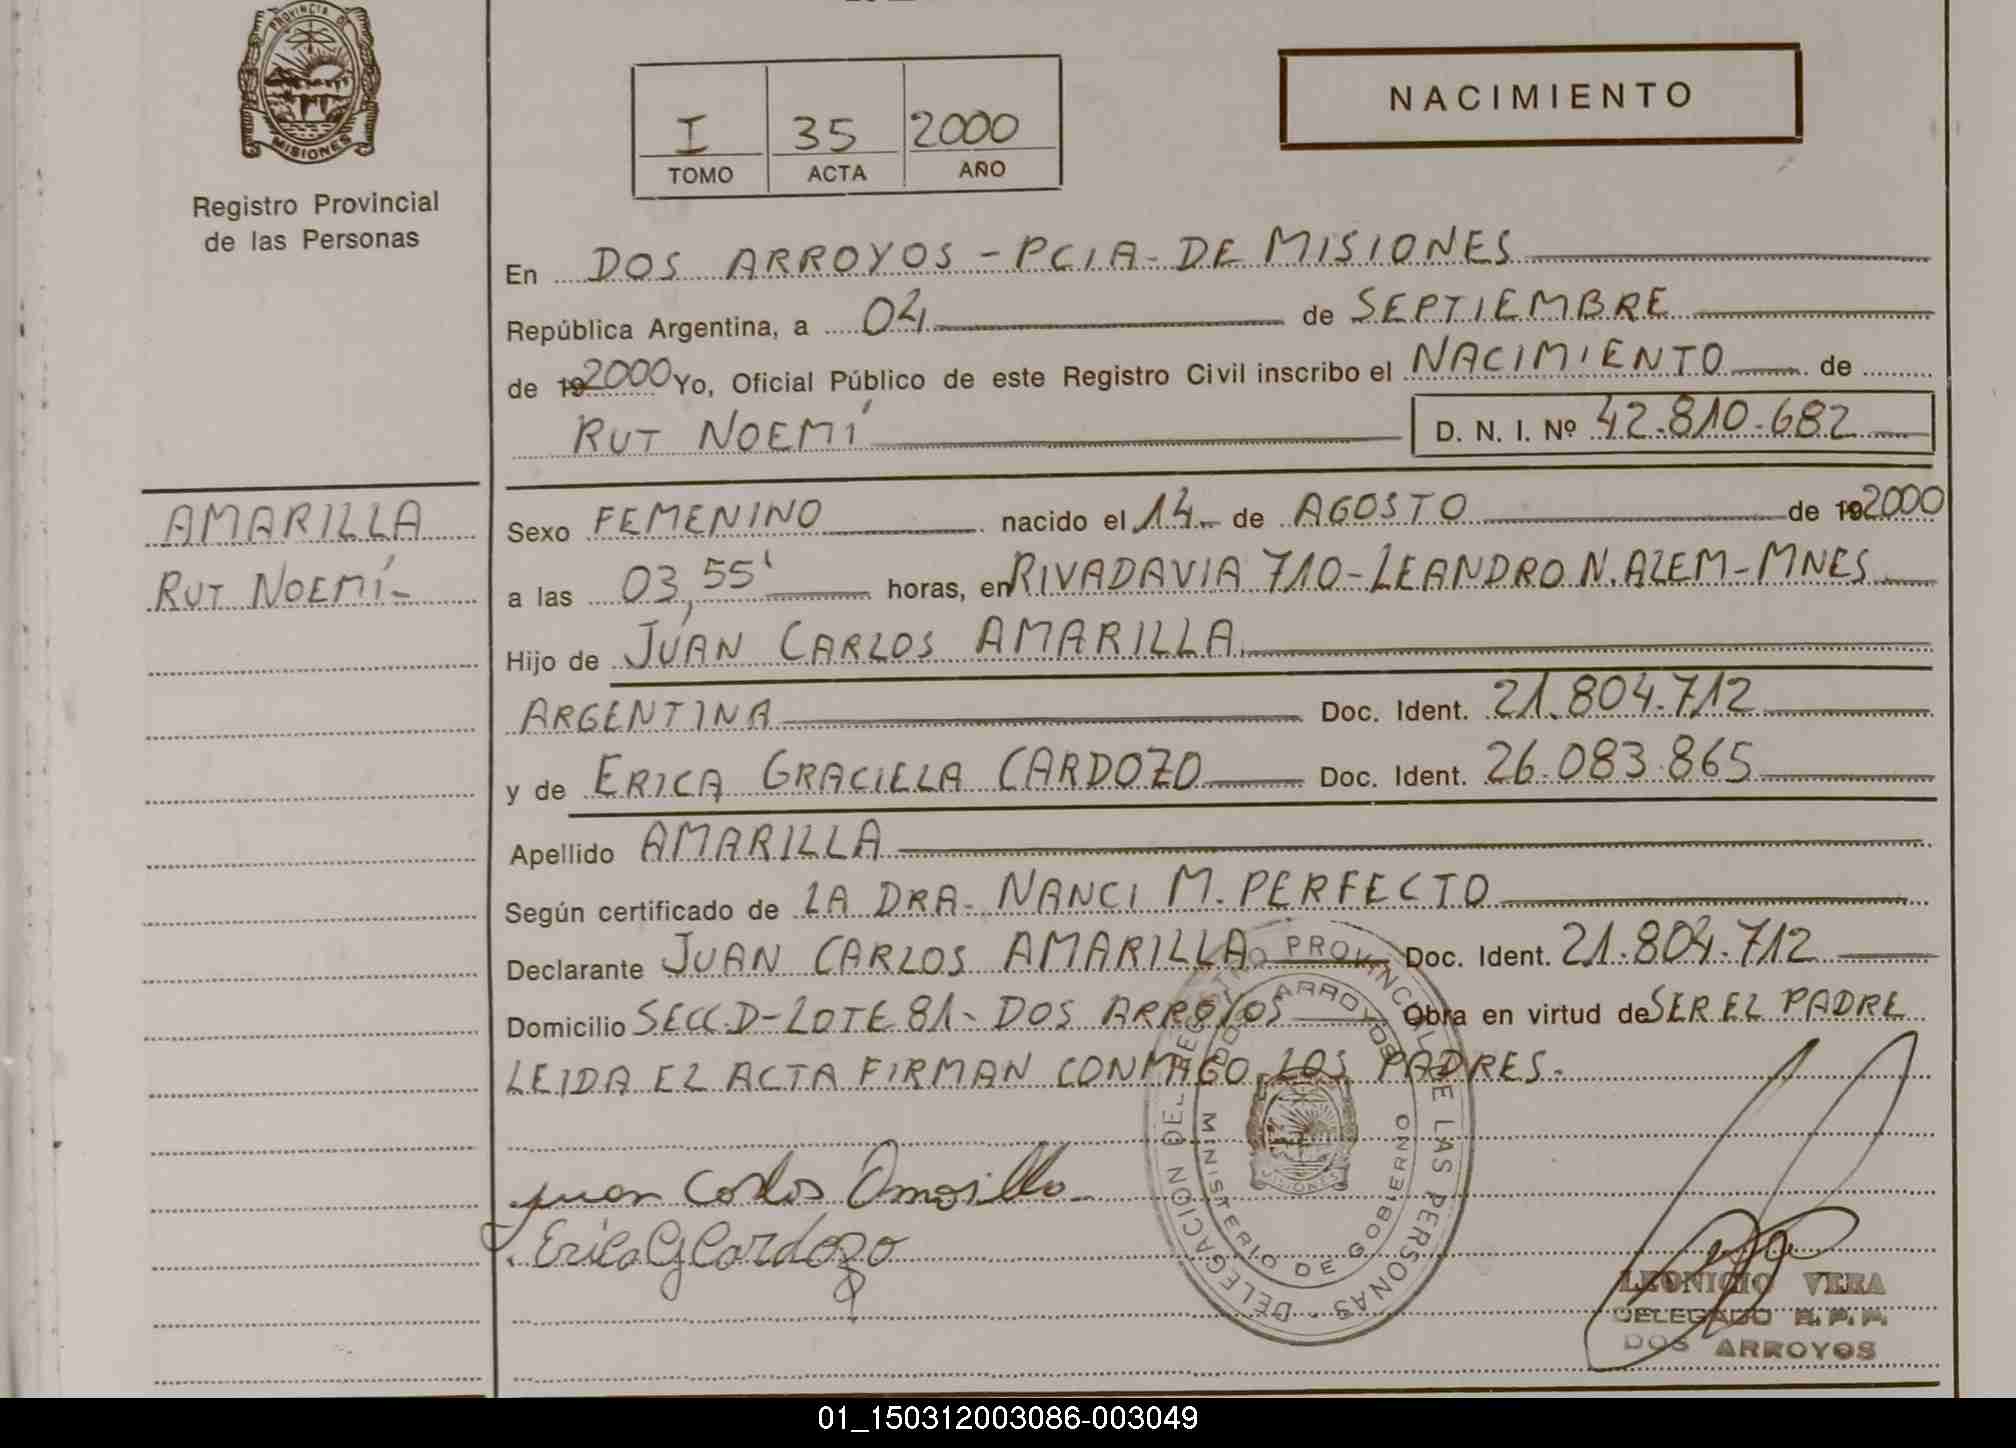 PROVINCIA DE
MISIONES
Registro Provincial
de las Personas
I 35 2000
TOMO ACTA AÑO
NACIMIENTO
En DOS ARROYOS - PCIA - DE MISIONES
República Argentina, a 04 de SEPTIEMBRE
de 19 2000 Yo, Oficial Público de este Registro Civil inscribo el NACIMIENTO de
RUT NOEMÍ D. N. I. Nº 42.810.682
AMARILLA
RUT NOEMÍ-
Sexo FEMENINO nacido el 14 de AGOSTO de 19 2000
a las 03,55' horas, en RIVADAVIA 710 - LEANDRO N. ALEM - MNES
Hijo de JUAN CARLOS AMARILLA
ARGENTINA Doc. Ident. 21.804.712
y de ERICA GRACIELA CARDOZO Doc. Ident. 26.083.865
Apellido AMARILLA
Según certificado de LA DRA. NANCI M. PERFECTO
Declarante JUAN CARLOS AMARILLA Doc. Ident. 21.804.712
Domicilio SECC. D - LOTE 81 - DOS ARROYOS Obra en virtud de SER EL PADRE
LEIDA EL ACTA FIRMAN CONMIGO LOS PADRES.
DELEGACION DEL REGISTRO PROVINCIAL DE LAS PERSONAS
DOS ARROYOS
MINISTERIO DE GOBIERNO
MISIONES
Juan Carlos Amarilla
Erica G Cardozo
LEONICIO VERA
DELEGADO R. P. P.
DOS ARROYOS
01_150312003086-003049